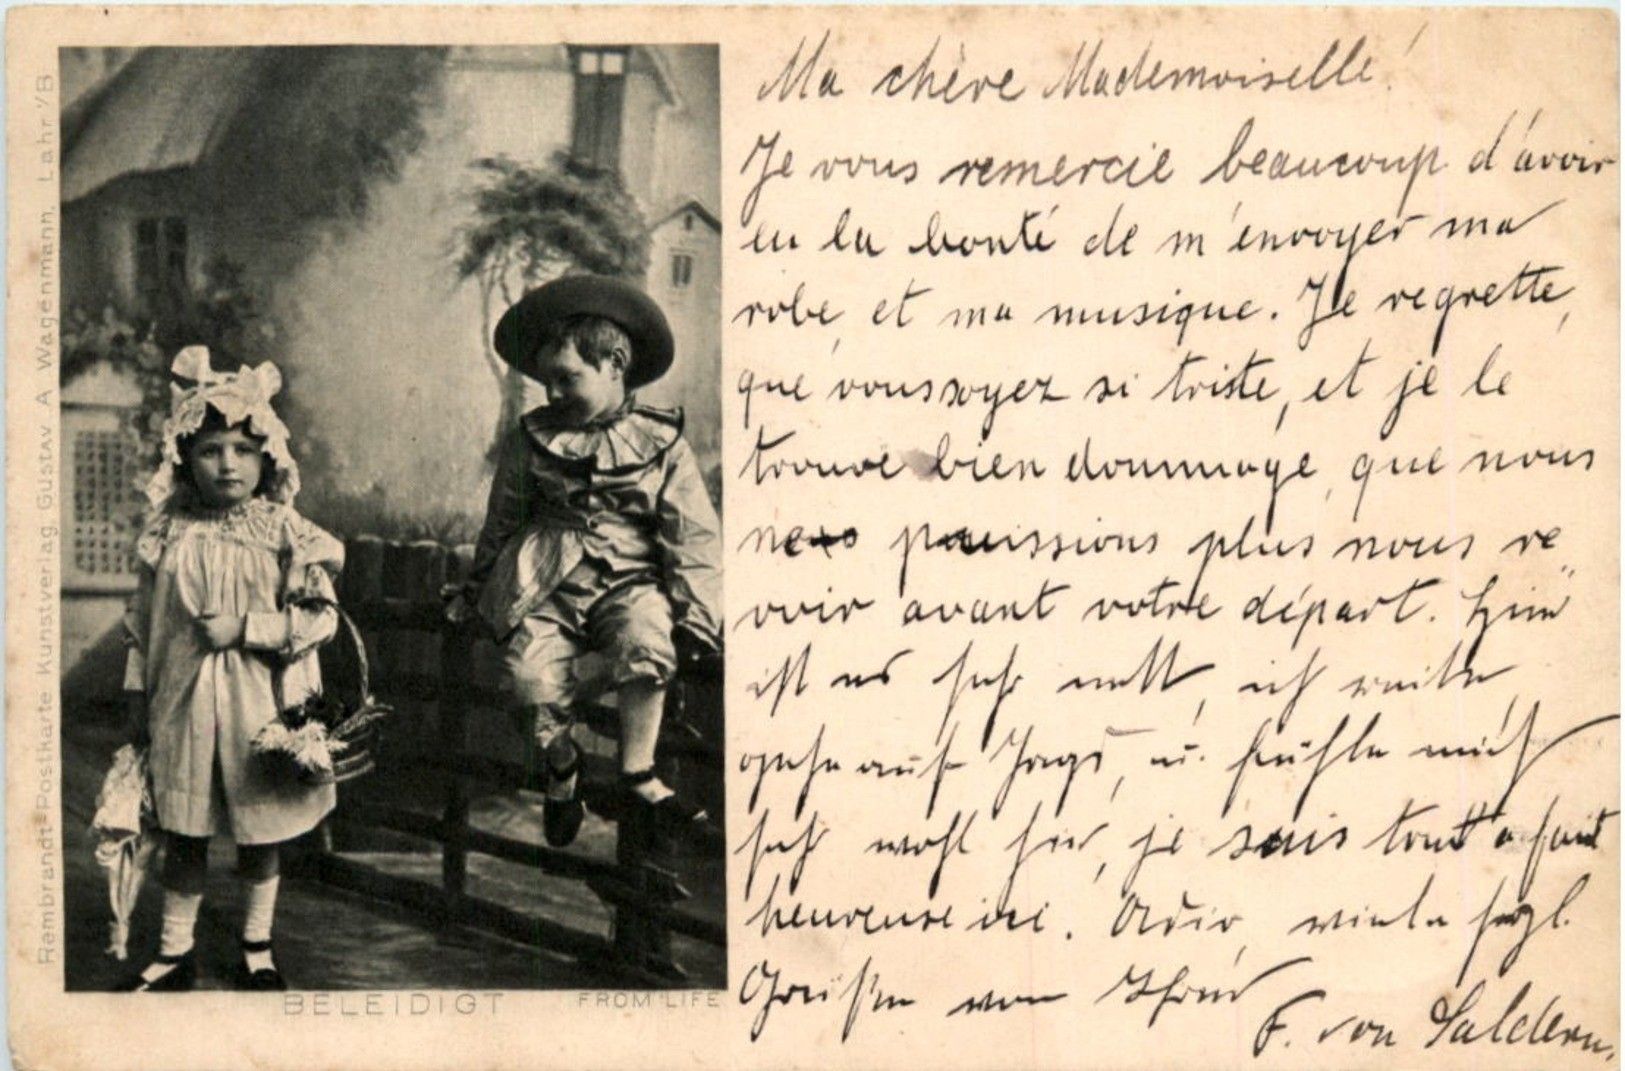 Rembrandt-Postkarte Kunstverlag Gustav A Wagenmann. Lahr i/B
BELEIDIGT
FROM LIFE
Ma chère Mademoiselle!
Je vous remercie beaucoup d'avoir
eu la bonté de m'envoyer ma
robe, et ma musique. Je regrette,
que vous soyez si triste, et je le
trouve bien dommage, que nous
ne puissions plus nous re
voir avant votre départ. Hier
ist es sehr nett, ich reite,
gehe auf Jagd, u. fühle mich
sehr wohl hier, je suis tout à fait
heureuse ici. Adio, viele herzl.
Grüßen von Ihrer
F. von Saldern.